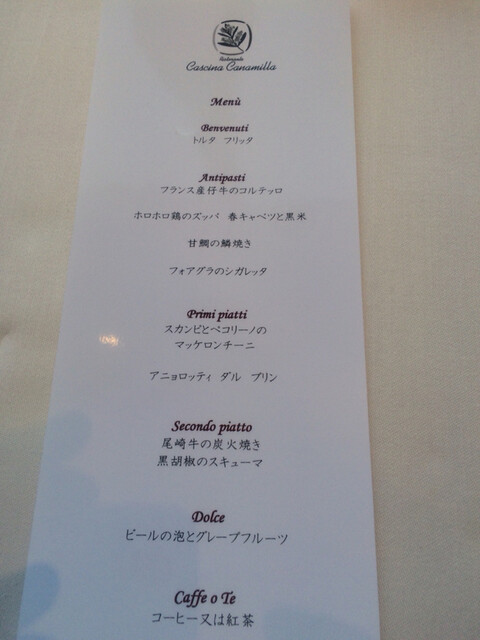 Ristorante
Cascina Canamilla
Menù
Benvenuti
トルタ フリッタ
Antipasti
フランス産仔牛のコルテッロ
ホロホロ鶏のズッパ 春キャベツと黒米
甘鯛の鱗焼き
フォアグラのシガレッタ
Primi piatti
スカンピとペコリーノの
マッケロンチーニ
アニョロッティ ダル プリン
Secondo piatto
尾崎牛の炭火焼き
黒胡椒のスキューマ
Dolce
ビールの泡とグレープフルーツ
Caffe o Te
コーヒー又は紅茶